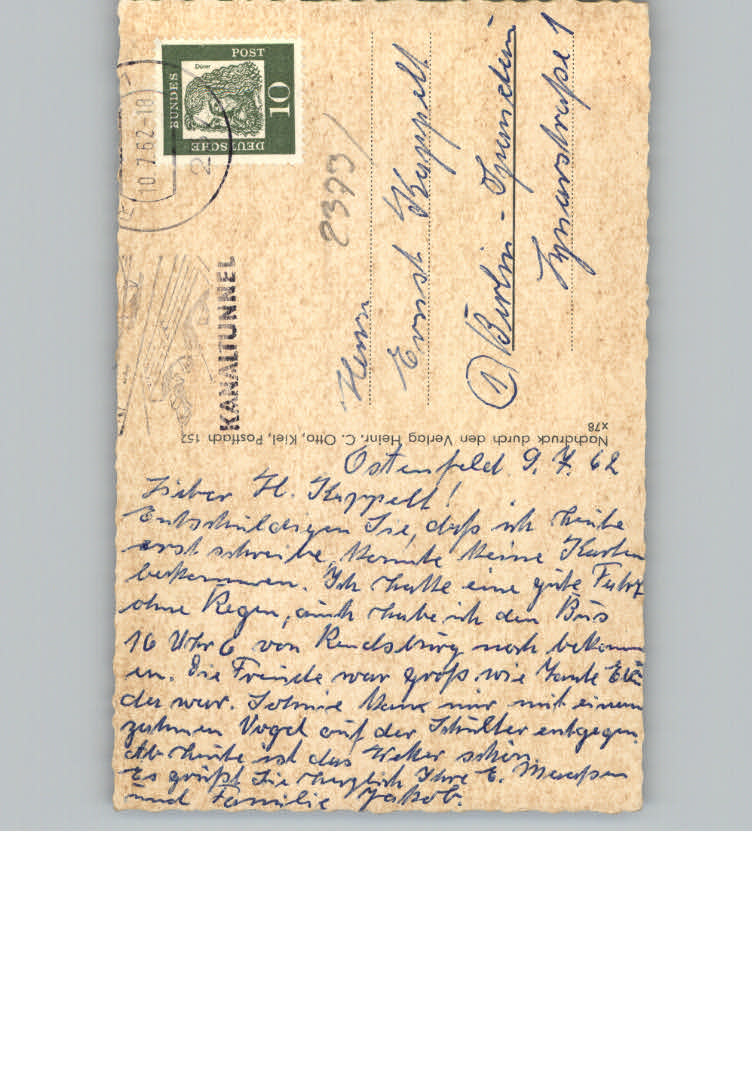 DEUTSCHE
BUNDES
POST
Dürer
10
10.7.62-18
KANALTUNNEL
2373/
Herrn
Ernst Kuppelt
① Berlin - Spandau
Lynarstraße 1
Nachdruck durch den Verlag Heinr. C. Otto, Kiel, Postfach 157
x78
Ostenfeld 9.7.62
Lieber H. Kuppelt!
Entschuldigen Sie, daß ich heute
erst schreibe, konnte keine Karten
bekommen. Ich hatte eine gute Fahrt
ohne Regen, auch habe ich den Bus
16 Uhr 6 von Rendsburg noch bekomm
en. Die Freude war groß wie Tante
da war. kam mir mit einem
zahmen Vogel auf der Schulter entgegen.
Ab heute ist das Wetter schön.
Es grüßt Sie herzlich Ihre E.
und Familie Jakob.